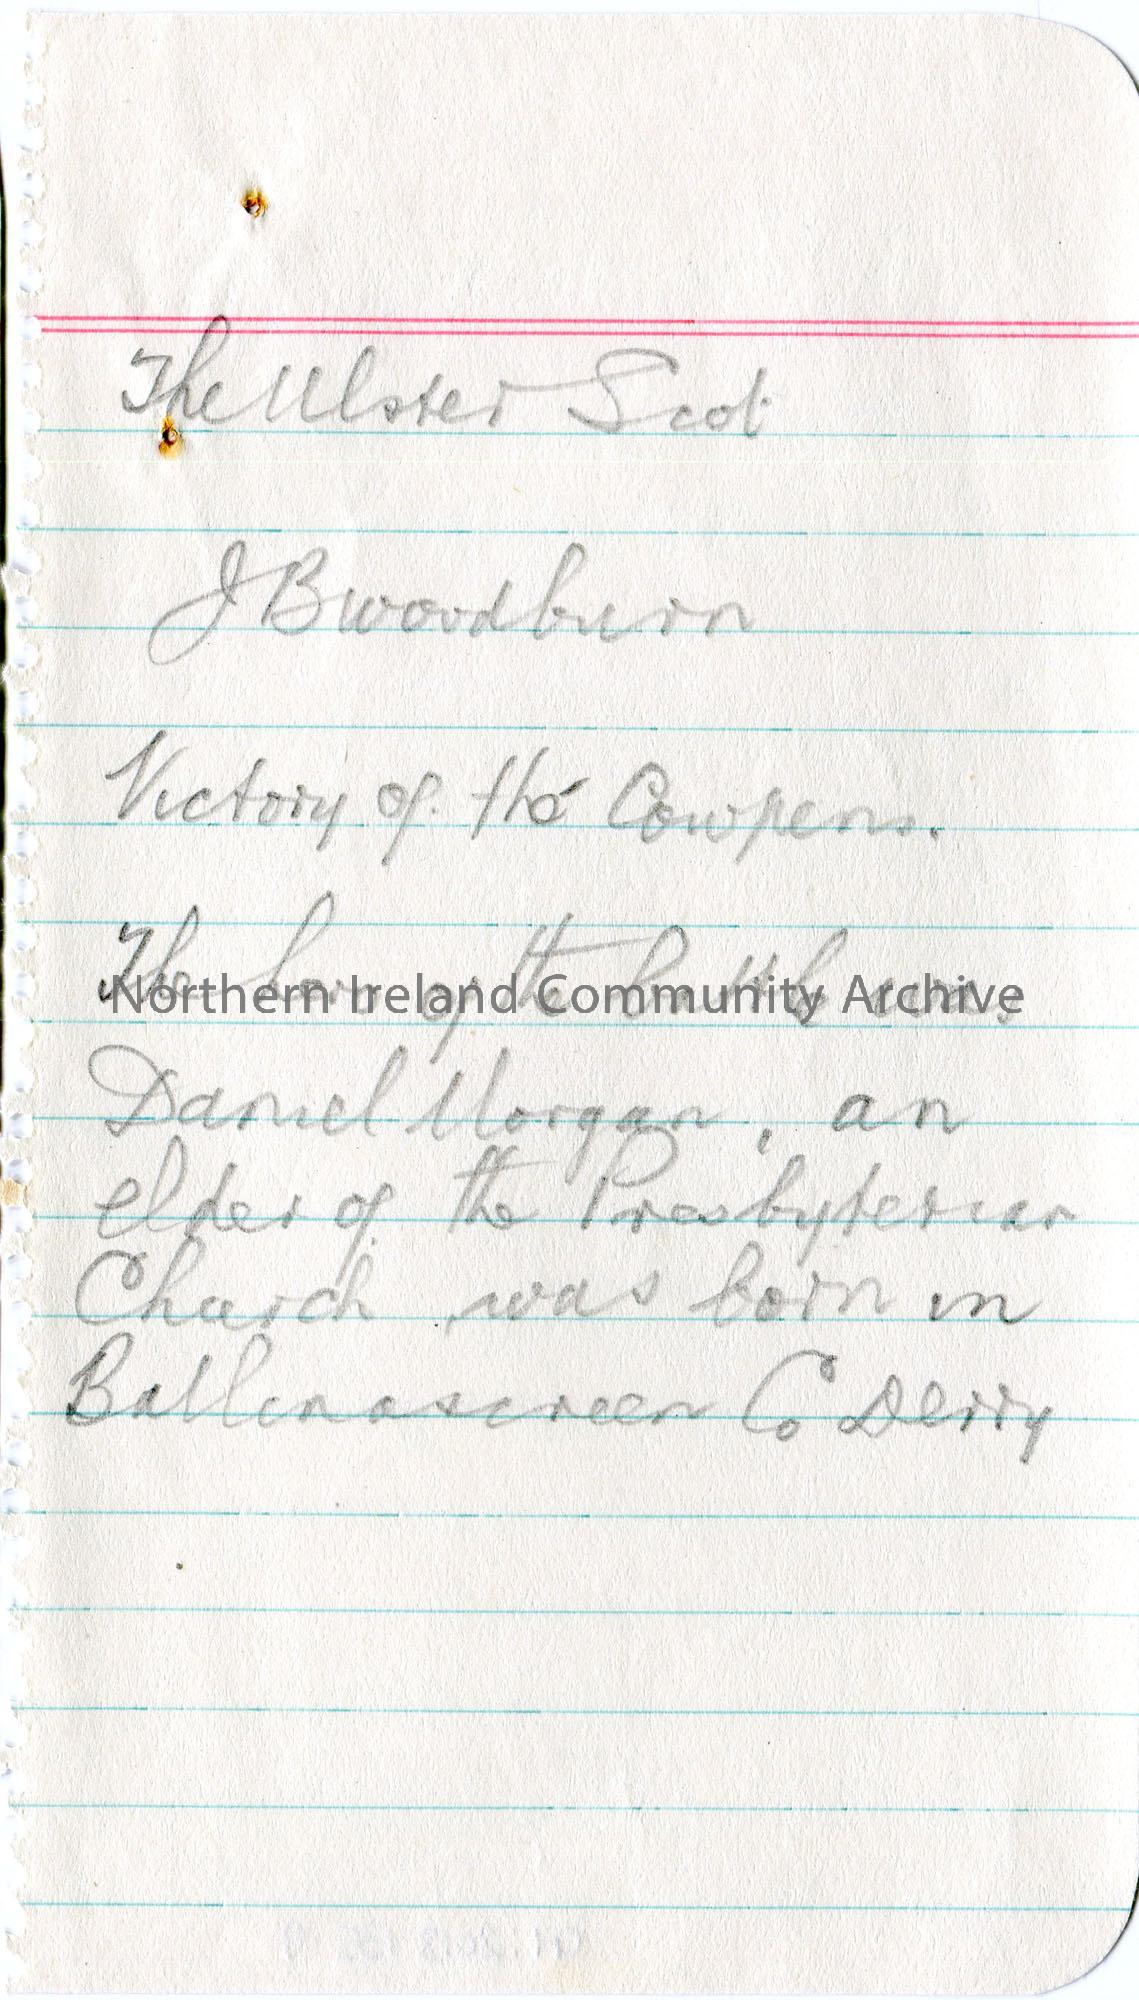 The Ulster Scot
J B Woodburn
Victory of the Cowpens.
The hero of the battle was,
Northern Ireland Community Archive
Daniel Morgan, an
elder of the Presbyterian
Church was born in
Ballinascreen Co Derry